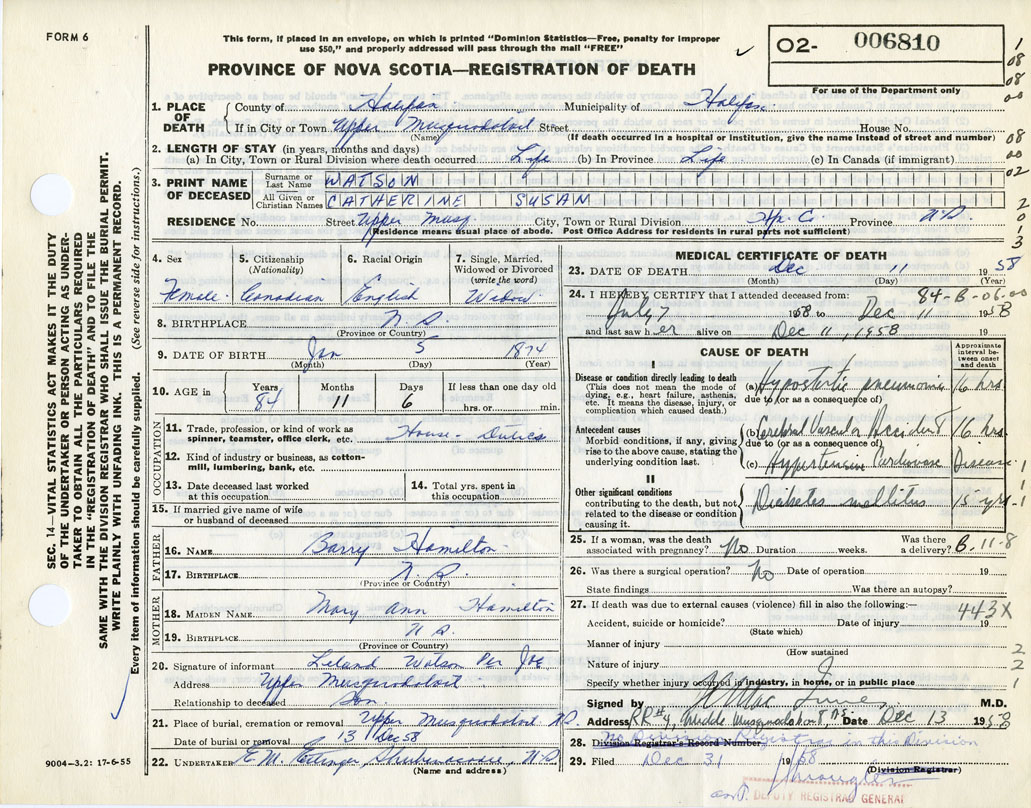 FORM 6
This form, if placed in an envelope, on which is printed "Dominion Statistics—Free, penalty for improper
use $50," and properly addressed will pass through the mail "FREE"
O2- 006810
For use of the Department only
PROVINCE OF NOVA SCOTIA—REGISTRATION OF DEATH
1. PLACE OF DEATH
County of Halifax Municipality of Halifax
If in City or Town Upper Musquodoboit Street House No.
(Name) (If death occurred in a hospital or institution, give the name instead of street and number)
2. LENGTH OF STAY (in years, months and days)
(a) In City, Town or Rural Division where death occurred Life (b) In Province Life (c) In Canada (if immigrant)
3. PRINT NAME OF DECEASED
Surname or Last Name WATSON
All Given or Christian Names CATHERINE SUSAN
RESIDENCE No. Street Upper Musq. City, Town or Rural Division Hfx. C. Province N.S.
(Residence means usual place of abode. Post Office Address for residents in rural parts not sufficient)
4. Sex
Female
5. Citizenship
(Nationality)
Canadian
6. Racial Origin
English
7. Single, Married,
Widowed or Divorced
(write the word)
Widow
8. BIRTHPLACE N.S.
(Province or Country)
9. DATE OF BIRTH Jan 5 1874
(Month) (Day) (Year)
10. AGE in
Years Months Days If less than one day old
84 11 6 hrs. or min.
OCCUPATION
11. Trade, profession, or kind of work as House Duties
spinner, teamster, office clerk, etc.
12. Kind of industry or business, as cotton-
mill, lumbering, bank, etc.
13. Date deceased last worked
at this occupation
14. Total yrs. spent in
this occupation
15. If married give name of wife
or husband of deceased
FATHER
16. NAME Barry Hamilton
17. BIRTHPLACE N.S.
(Province or Country)
MOTHER
18. MAIDEN NAME Mary Ann Hamilton
19. BIRTHPLACE N.S.
(Province or Country)
20. Signature of informant Leland Watson Per JOE
Address Upper Musquodoboit
Relationship to deceased Son
21. Place of burial, cremation or removal Upper Musquodoboit N.S.
Date of burial or removal 13 Dec 58
22. UNDERTAKER E. M. Ettinger, Shubenacadie, N.S.
(Name and address)
9004—3.2: 17-6-55
MEDICAL CERTIFICATE OF DEATH
23. DATE OF DEATH Dec 11 1958
(Month) (Day) (Year)
84-B-06-00
24. I HEREBY CERTIFY that I attended deceased from:
July 7 1958 to Dec 11 1958
and last saw her alive on Dec 11, 1958 19
CAUSE OF DEATH
Approximate
interval be-
tween onset
and death
I
Disease or condition directly leading to death
(This does not mean the mode of
dying, e.g., heart failure, asthenia,
etc. It means the disease, injury, or
complication which caused death.)
(a) Hypostatic pneumonia 16 hrs
due to (or as a consequence of)
Antecedent causes
Morbid conditions, if any, giving
rise to the above cause, stating the
underlying condition last.
(b) Cerebral Vascular Accident 16 hrs
due to (or as a consequence of)
(c) Hypertension Cardiovasc Disease
II
Other significant conditions
contributing to the death, but not
related to the disease or condition
causing it.
Diabetes mellitus 15 yrs
25. If a woman, was the death
associated with pregnancy? No Duration weeks.
Was there
a delivery? B-11-8
26. Was there a surgical operation? No Date of operation 19
State findings Was there an autopsy?
27. If death was due to external causes (violence) fill in also the following:—
443X
Accident, suicide or homicide? Date of injury 19
(State which)
Manner of injury
(How sustained
Nature of injury
Specify whether injury occurred in industry, in home, or in public place
Signed by M.D.
Address RR #4, Middle Musquodoboit N.S. Date Dec 13 1958
No Division Registrar in this Division
28. Division Registrar's Record Number
29. Filed Dec 31 1958
(Division Registrar)
DEPUTY REGISTRAR GENERAL
SEC. 14—VITAL STATISTICS ACT MAKES IT THE DUTY
OF THE UNDERTAKER OR PERSON ACTING AS UNDER-
TAKER TO OBTAIN ALL THE PARTICULARS REQUIRED
IN THE "REGISTRATION OF DEATH" AND TO FILE THE
SAME WITH THE DIVISION REGISTRAR WHO SHALL ISSUE THE BURIAL PERMIT.
WRITE PLAINLY WITH UNFADING INK. THIS IS A PERMANENT RECORD.
Every item of information should be carefully supplied. (See reverse side for instructions.)
1
08
08
00
08
00
02
2
0
1
3
1
1
2
2